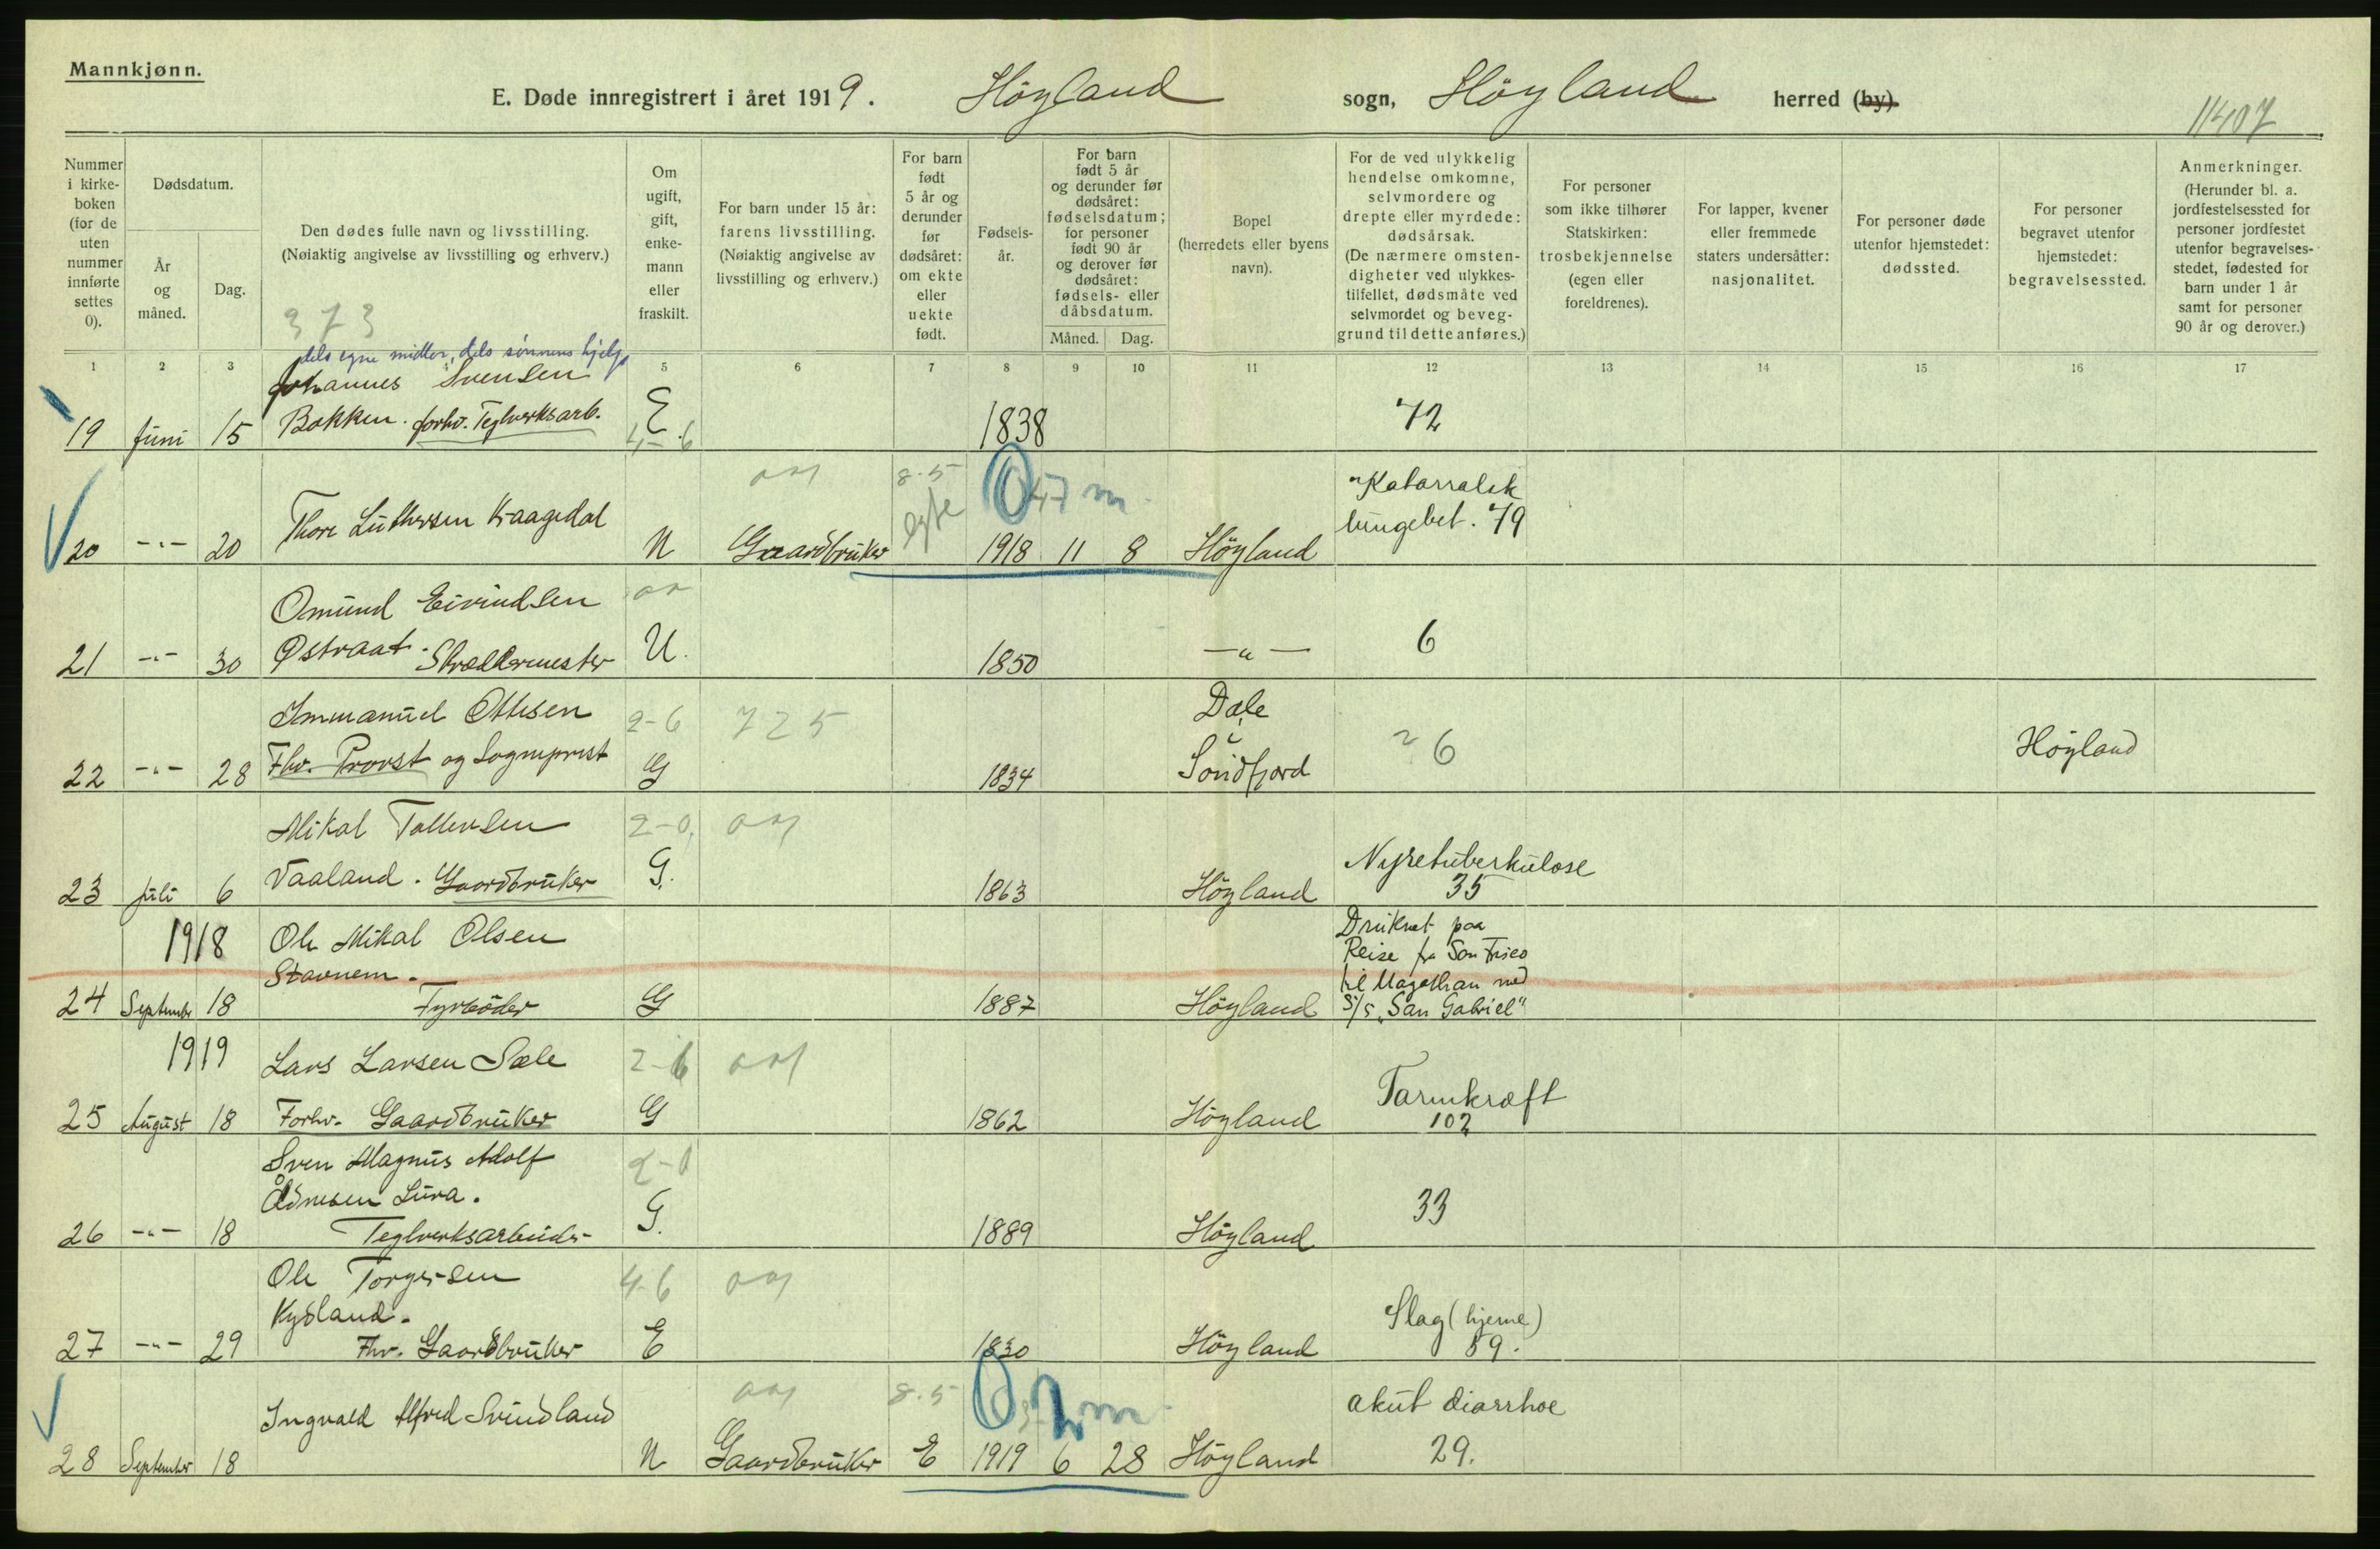 Mannkjønn.
E. Døde innregistrert i året 1919. Höyland sogn, Höyland herred (by).
11407
Nummer i kirke-boken (for de uten nummer innførte settes 0).
Dødsdatum.
År og måned.
Dag.
Den dødes fulle navn og livsstilling.
(Nøiaktig angivelse av livsstilling og erhverv.)
373
Om ugift, gift, enke-mann eller fraskilt.
For barn under 15 år: farens livsstilling.
(Nøiaktig angivelse av livsstilling og erhverv.)
For barn født 5 år og derunder før dødsåret: om ekte eller uekte født.
Fødsels-år.
For barn født 5 år og derunder før dødsåret: fødselsdatum; for personer født 90 år og derover før dødsåret: fødsels- eller dåbsdatum.
Måned. Dag.
Bopel (herredets eller byens navn).
For de ved ulykkelig hendelse omkomne, selvmordere og drepte eller myrdede: dødsårsak.
(De nærmere omsten-digheter ved ulykkes-tilfellet, dødsmåte ved selvmordet og beveg-grund til dette anføres.)
For personer som ikke tilhører Statskirken: trosbekjennelse (egen eller foreldrenes).
For lapper, kvener eller fremmede staters undersåtter: nasjonalitet.
For personer døde utenfor hjemstedet: dødssted.
For personer begravet utenfor hjemstedet: begravelsessted.
Anmerkninger.
(Herunder bl. a. jordfestelsessted for personer jordfestet utenfor begravelses-stedet, fødested for barn under 1 år samt for personer 90 år og derover.)
1 2 3 5 6 7 8 9 10 11 12 13 14 15 16 17
dels egne midler, dels sönnens hjelp
Johannes Svensen
19 Juni 15 Bakken. forhv. Teglverksarb. E 1838 72
4-6
8.5 47 m Katarralsk
egte lungebet. 79
20 -"- 20 Thore Luthersen Kraagedal N Gaardbruker 1918 11 8 Höyland
Omund Eivindsen
21 -"- 30 Østraat. Skræddermester U. 1850 -"- 6
Immanuel Ottesen 2-6 725 Dale
i
22 -"- 28 Fhv. Provst og Sogneprest G 1834 Söndfjord 6 Höyland
Mikal Tollevsen 2-0
23 Juli 6 Vaaland. Gaardbruker G. 1863 Höyland Nyretuberkulose
35
1918 Ole Mikal Olsen
Stavnem.
24 September 18 Fyrböder G 1887 Höyland
Druknet paa
Reise fra San Frisco
til Magelhan med
S/S "San Gabriel"
1919 Lars Larsen Sæle 2-6
25 August 18 Forhv. Gaardbruker G 1862 Höyland Tarmkræft
102
Sven Magnus Adolf 2-0
Ådnesen Lura.
26 -"- 18 Teglverksarbeider G. 1889 Höyland 33
Ole Torgersen 4-6
Kydland.
27 -"- 29 Fhv. Gaardbruker E 1830 Höyland Slag (hjerne)
89.
8.5 2 m akut diarrhoe
28 September 18 Ingvald Alfred Svindland N Gaardbruker E 1919 6 28 Höyland 29.